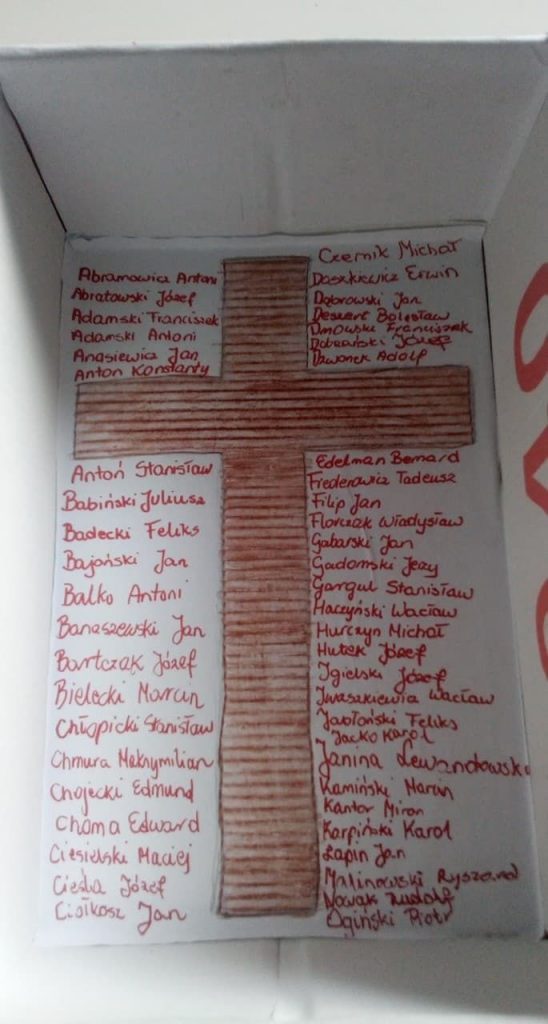 Abramowicz Antoni
Abratowski Józef
Adamski Franciszek
Adamski Antoni
Anasiewicz Jan
Anton Konstanty
Antoń Stanisław
Babiński Juliusz
Badecki Feliks
Bajoński Jan
Balko Antoni
Banaszewski Jan
Bartczak Józef
Bielecki Marcin
Chłapicki Stanisław
Chmura Maksymilian
Chojecki Edmund
Choma Edward
Ciesielski Maciej
Cieśla Józef
Ciołkosz Jan
Czernik Michał
Daszkiewicz Erwin
Dąbrowski Jan
Dessert Bolesław
Dmowski Franciszek
Józef
Dzwonek Adolf
Edelman Bernard
Frederowicz Tadeusz
Filip Jan
Florczak Władysław
Gabarski Jan
Gadomski Jerzy
Gargul Stanisław
Haczyński Wacław
Hurczyn Michał
Hutek Józef
Igielski Józef
Iwaszkiewicz Wacław
Jabłoński Feliks
Jacko Karol
Janina Lewandowska
Kamiński Marcin
Kantor Miron
Karpiński Karol
Łapin Jan
Malinowski Ryszard
Nowak Rudolf
Ogiński Piotr